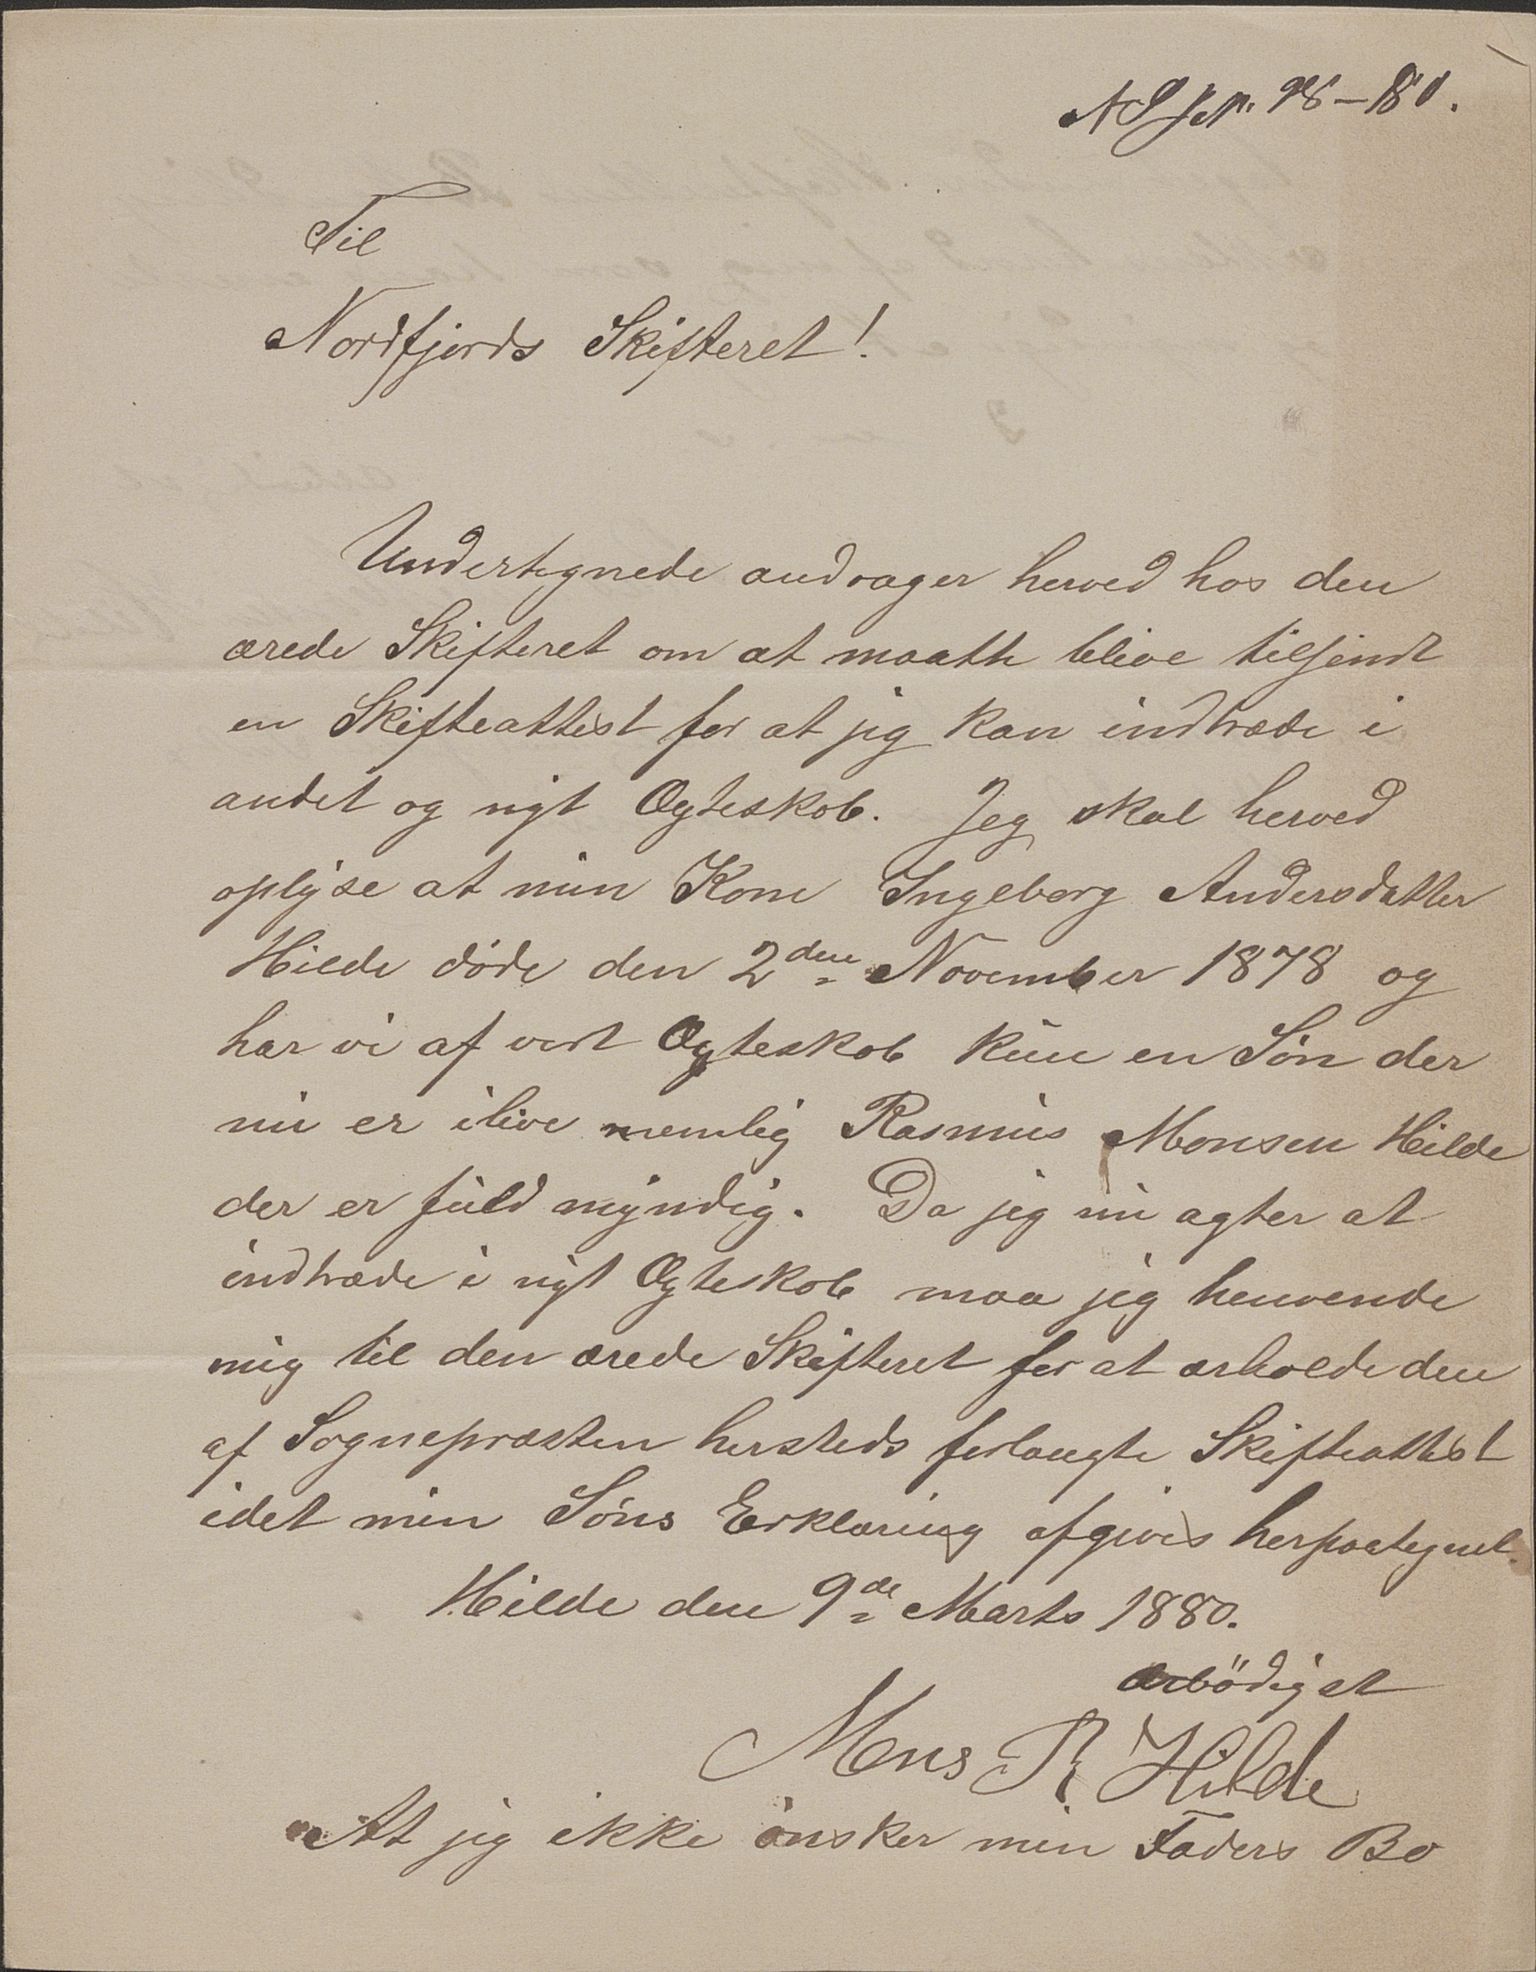 98-80.
Til
Nordfjords Skifteret!
Undertegnede andrager herved hos den
ærede Skifteret om at maatte blive tilsendt
en Skifteattest for at jeg kan indtræde i
andet og nyt Ægteskab. Jeg skal herved
oplyse at min Kone Ingeborg Andersdatter
Hilde døde den 2den November 1878 og
har vi af vort Ægteskab kun en Søn der
nu er ilive nemlig Rasmus Monsen Hilde
der er fuld myndig. Da jeg nu agter at
indtræde i nyt Ægteskab maa jeg henvende
mig til den ærede Skifteret for at erholde den
af Sognepræsten hersteds forlangte Skifteattest
idet min Søns Erklæring afgives herpaategnet.
Hilde den 9de Marts 1880.
ærbödigst
Mons R Hilde
At jeg ikke ønsker min Faders Bo